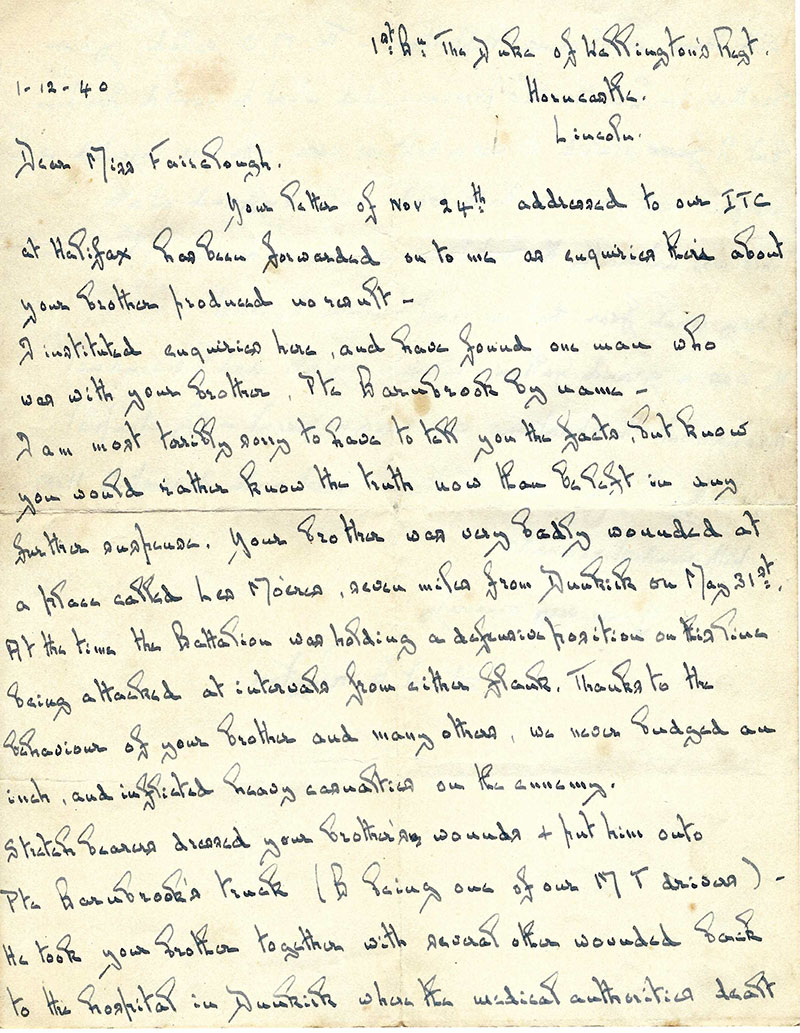 1st Bn: The Duke of Wellington's Regt.
1-12-40
Horncastle.
Lincoln.
Dear Miss Fairclough.
Your letter of Nov 24th: addressed to our ITC
at Halifax has been forwarded on to me as enquiries there about
your brother produced no result -
I instituted enquiries here, and have found one man who
was with your brother, Pte Barnbrook by name -
I am most terribly sorry to have to tell you the facts, but know
you would rather know the truth now than be left in any
further suspense. Your brother was very badly wounded at
a place called Les Moëres, seven miles from Dunkirk on May 31st:.
At the time the Battalion was holding a defensive position on this line
being attacked at intervals from either flank. Thanks to the
behaviour of your brother and many others, we never budged an
inch, and inflicted heavy casualties on the ennemy.
Stretch bearers dressed your brother's wounds + put him onto
Pte Barnbrook's truck (B being one of our M T drivers) -
He took your brother together with several other wounded back
to the hospital in Dunkirk where the medical authorities dealt